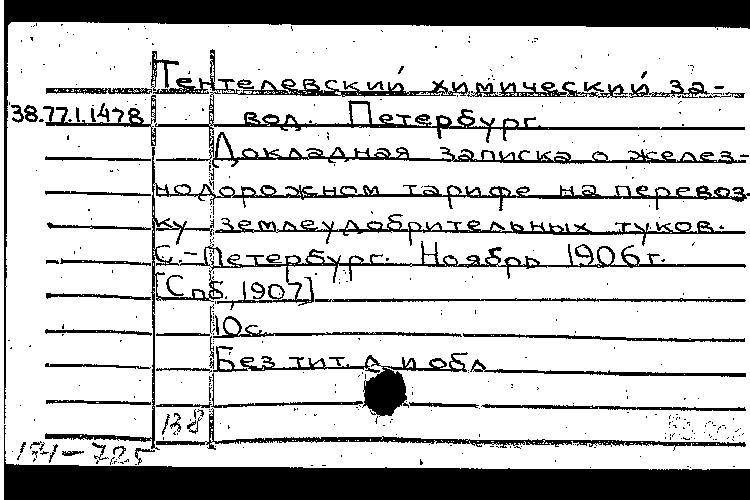 Тентелевский химический за-
38.77.1.1478 вод. Петербург.
Докладная записка о желез-
нодорожном тарифе на перевоз-
ку землеудобрительных туков.
С.-Петербург. Ноябрь 1906г.
[Спб, 1907]
10с.
Без тит. л и обл
138
171-725